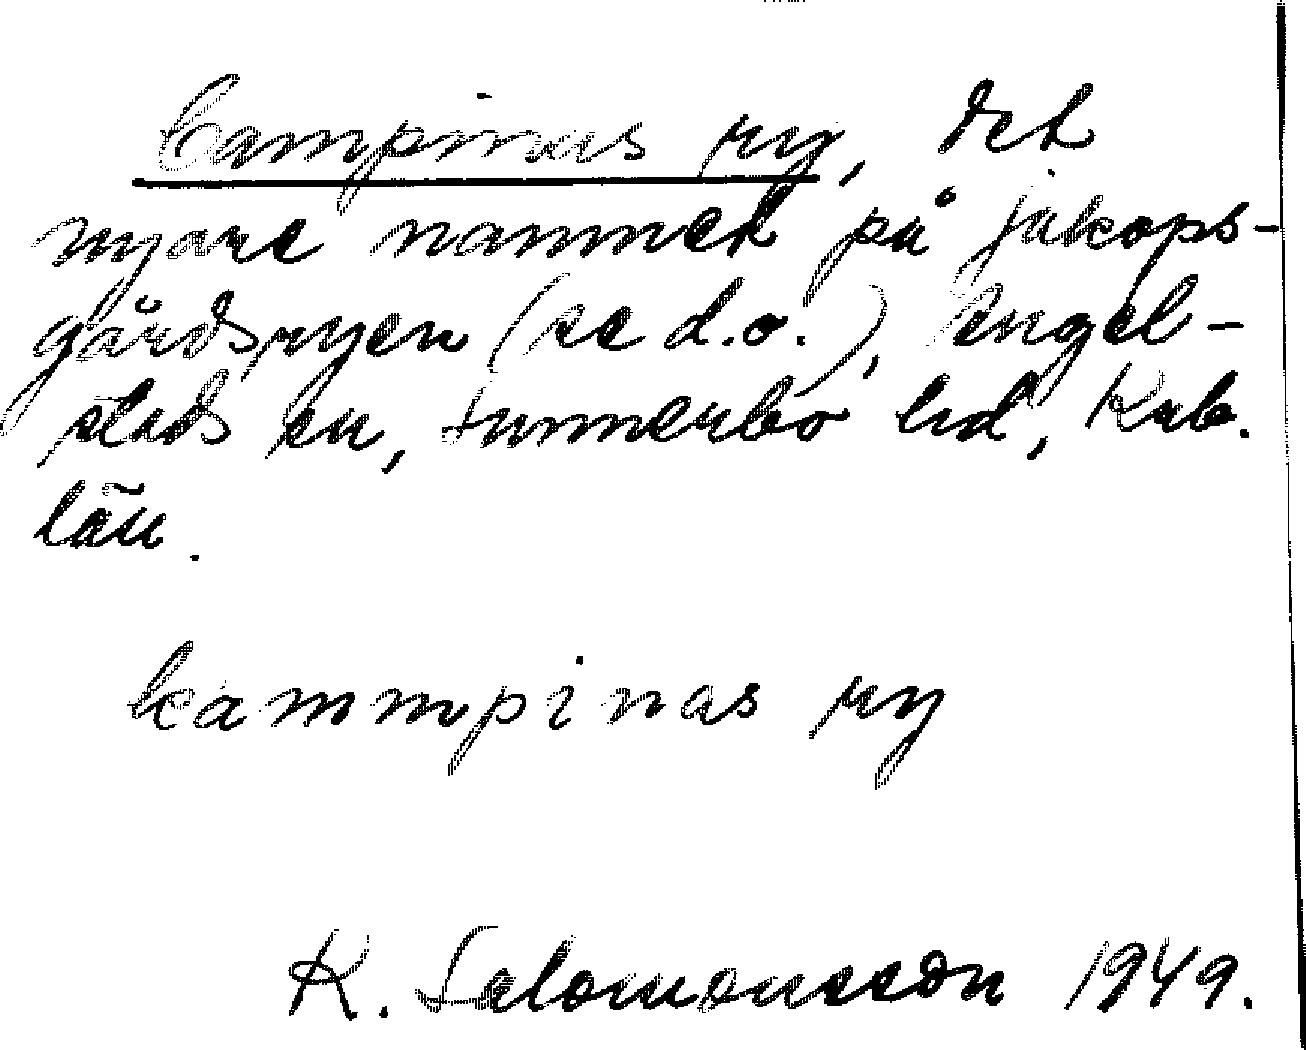 Campinas ry, det
nyare namnet på jakops-
gårdsryen (se d.o.), Engel-
stads sn, Sunnerbo hd, Krb.
län.
kammpinas ry
K. Salomonsson 1949.